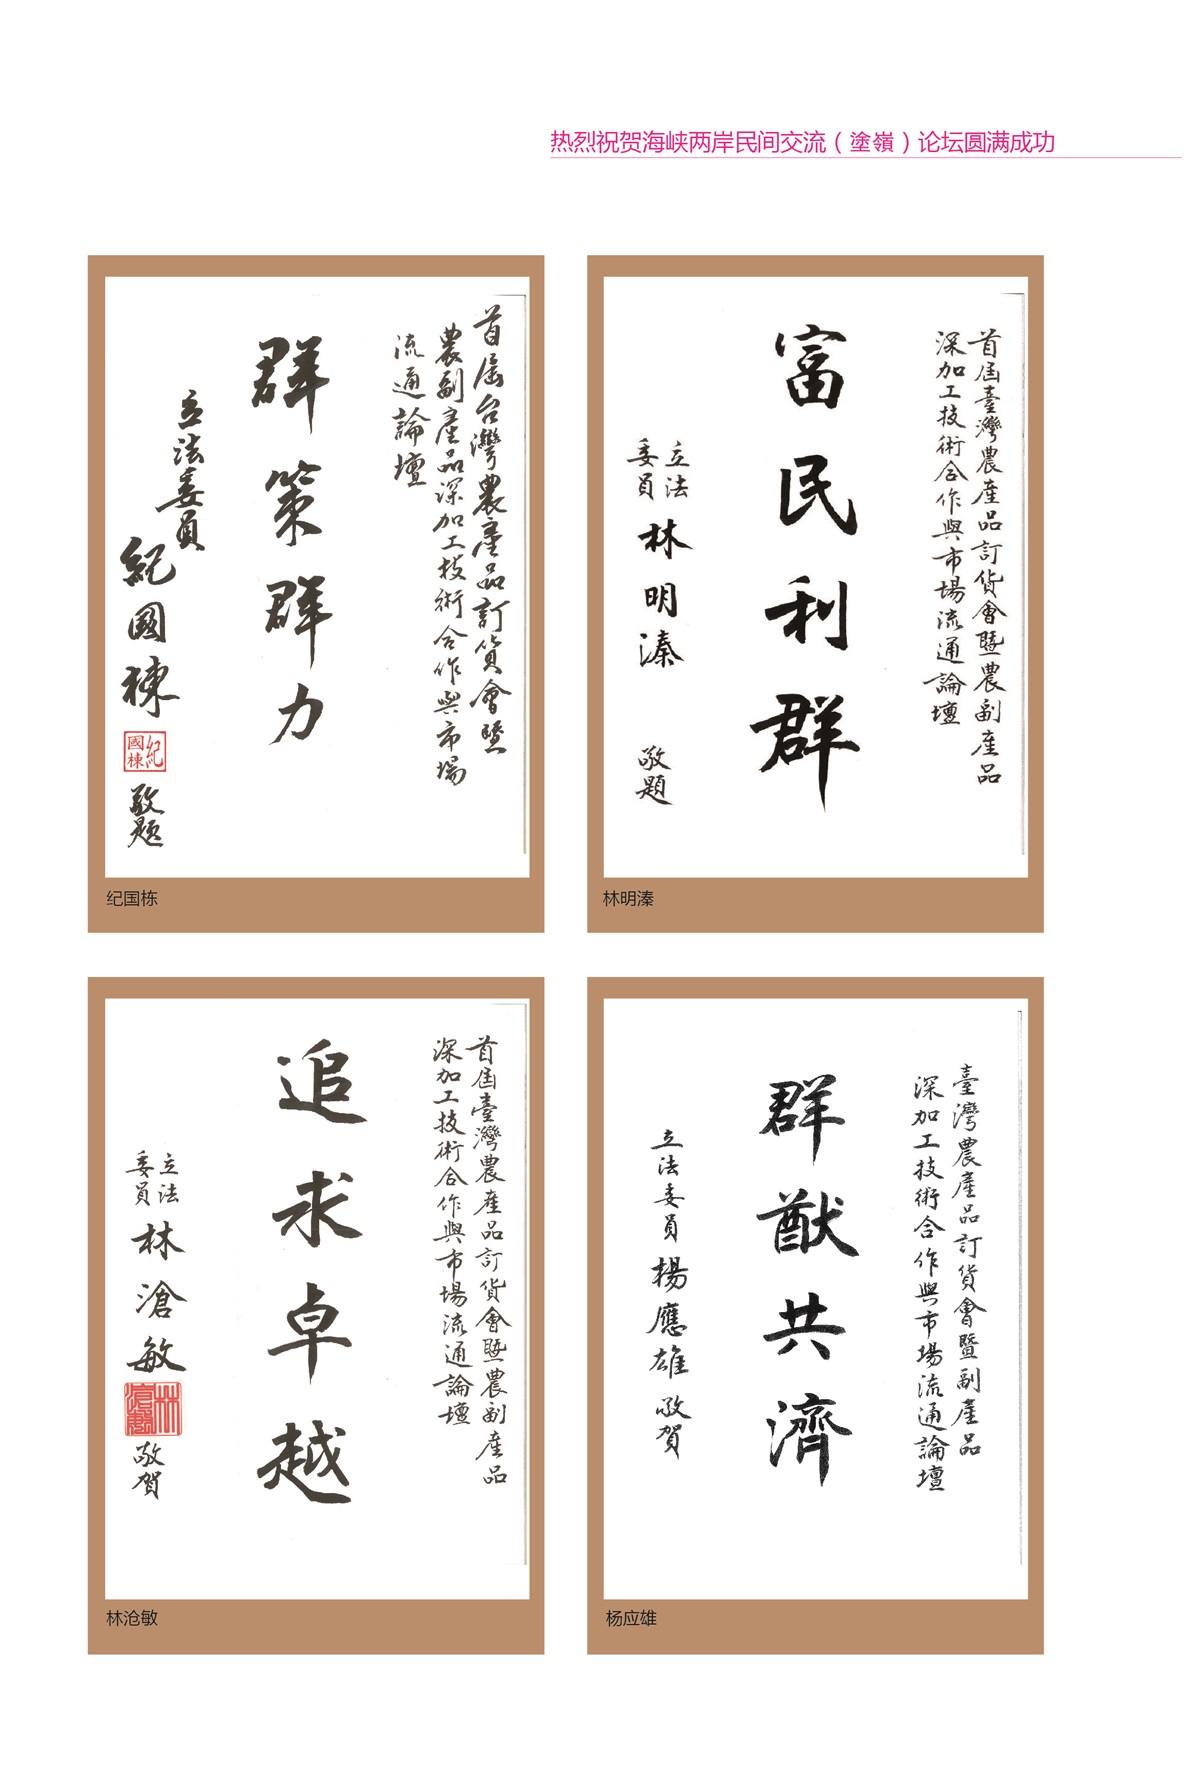 热烈祝贺海峡两岸民间交流（塗嶺）论坛圆满成功
首屆台灣農產品訂貨會暨
農副產品深加工技術合作與市場
流通論壇
群策群力
立法委員
紀國棟
紀
國棟
敬题
纪国栋
首屆臺灣農產品訂貨會暨農副產品
深加工技術合作與市場流通論壇
富民利群
立法
委員
林明溱
敬題
林明溱
首屆臺灣農產品訂貨會暨農副產品
深加工技術合作與市場流通論壇
追求卓越
立法
委員
林滄敏
林
滄敏
敬賀
林沧敏
臺灣農產品訂貨會暨副產品
深加工技術合作與市場流通論壇
群猷共濟
立法委員楊應雄敬賀
杨应雄